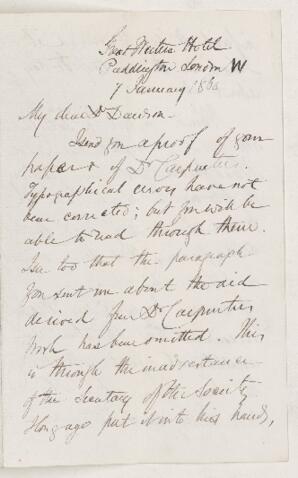 Great Western Hotel
Paddington London W
7 January 1865
My dear Dr Dawson -
I send you a proof of your
paper & of Dr Carpenter's.
Typographical errors have not
been corrected; but you will be
able to read through them.
I see too that the paragraph
you sent me about the aid
derived from Dr Carpenter's
work has been omitted. This
is through the inadvertence
of the Secretary of the Society
I long ago put it into his hands,